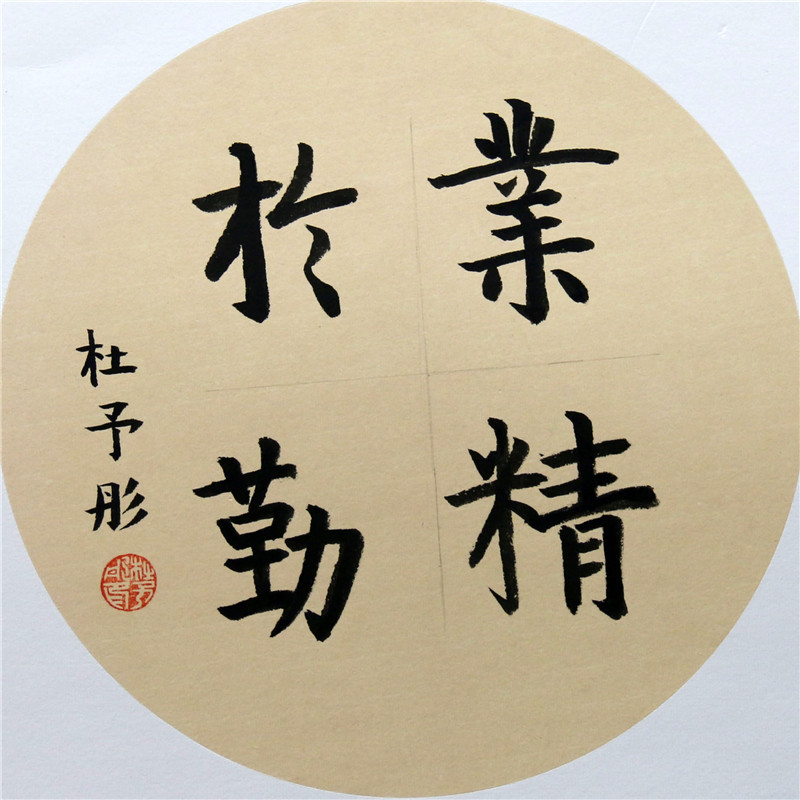 業精
於勤
杜予彤